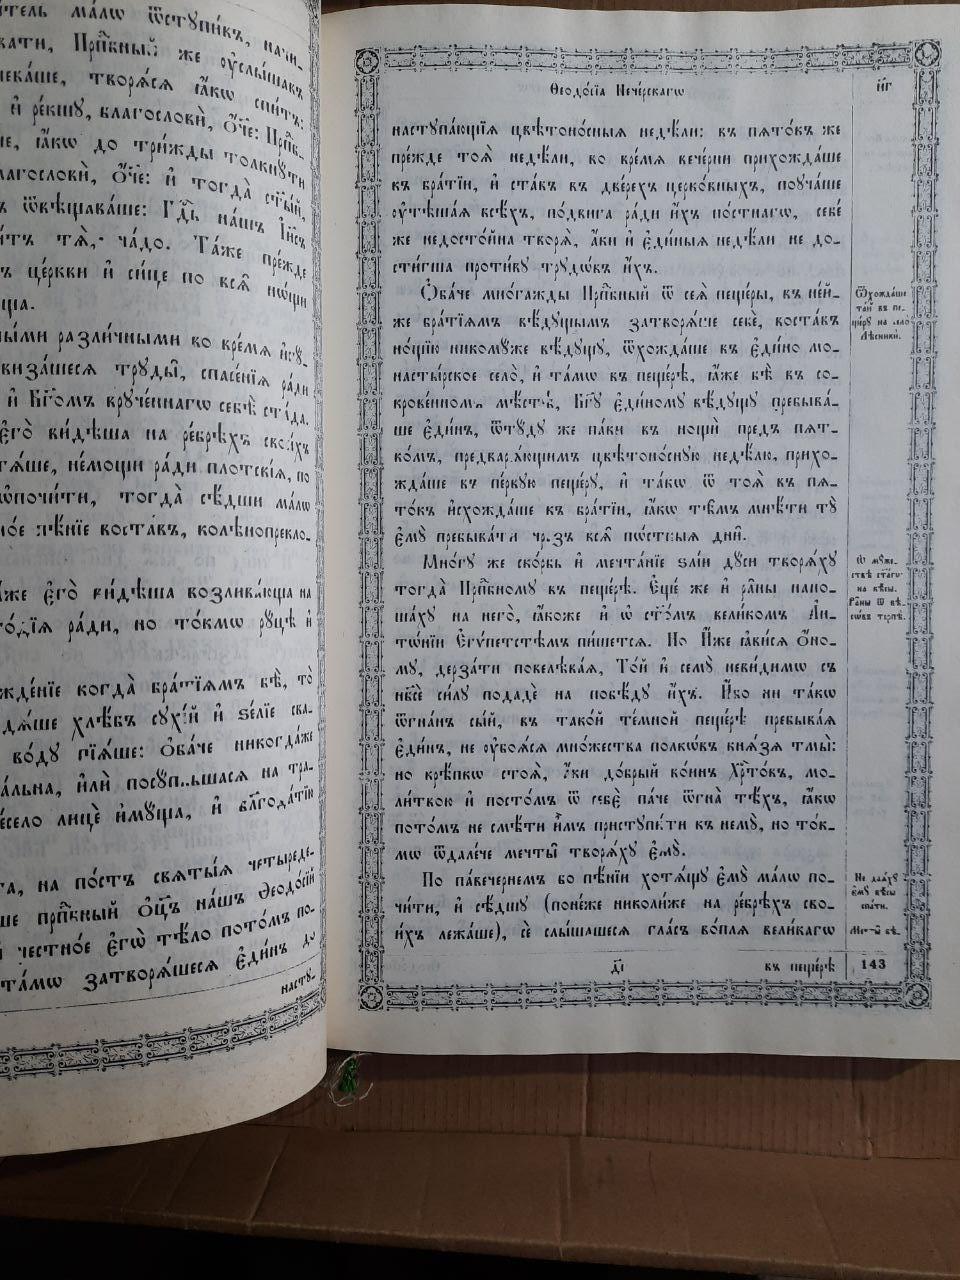 итель ма́лѡ ѿступи́въ, начи-
вати, Прпⷣбный же ᲂу҆слы́шавъ
чека́ше, творѧ́сѧ ꙗ҆́кѡ спи́тъ:
и҆ ре́кшу, благослови̂, ѻ҆́ч҃е: Прпⷣб-
ше, ꙗ҆́кѡ до три́жды толкну́ти
благослови̂, ѻ҆́ч҃е: и҆ тогда̀ ст҃ы́й,
ѿвѣщава́ше: Гдⷭ҇ь на́шъ І҆и҃съ
и́тъ тѧ̀, ча́до. Та́же пре́жде
ъ це́ркви и҆ си́це по всѧ̑ но́щи
ща.
ными разли́чными во вре́мѧ и҆ску-
виза́шесѧ труды̑, спасе́нїѧ ра́ди
и҆ Бг҃омъ вруче́ннагѡ себѣ̀ ста́да.
є҆го̀ ви́дѣша на ре́брѣхъ свои́хъ
тѧ́ше, не́мощи ра́ди плотскі́ѧ, по
ѡ҆почи́ти, тогда̀ сѣ́дши ма́лѡ
но́е пѣ́нїе воста́въ, колѣнопрекло-
же є҆го̀ ви́дѣша возлива́юща на
ра́ди, но то́кмѡ ру́цѣ и҆
жде́нїе когда̀ бра́тїѧмъ бѣ̀, то̀
ꙗ҆дѧ́ше хлѣ́бъ сухі́й и҆ ѕе́лїе сва-
во́ду пїѧ́ше: Ѻ҆ба́че никогда́же
а́льна, и҆лѝ на тра-
ве́село лицѐ и҆му́ща, и҆ бл҃года́тїю
та, на по́стъ свѧты́ѧ четыреде-
ше прпⷣбный ѻ҆ц҃ъ на́шъ Ѳеодо́сїй
й честно́е є҆гѡ̀ тѣ́ло пото́мъ по-
та́мѡ затворѧ́шесѧ є҆ди́нъ до
насту-
Ѳеодо́сїа Пече́рскагѡ
н҃г
наступа́ющїѧ цвѣтоно́сныѧ недѣ́ли: въ пѧто́къ же
пре́жде тоѧ̀ недѣ́ли, во вре́мѧ вече́рни прихожда́ше
къ бра́тїи, и҆ ста́въ въ две́рехъ церко́вныхъ, поуча́ше
ᲂу҆тѣша́ѧ всѣ́хъ, по́двига ра́ди и҆́хъ по́стнагѡ, себе́
же недосто́йна творѧ̀, а҆́ки и҆ є҆ди́ныѧ недѣ́ли не до-
сти́гша проти́ву трудѡ́въ и҆́хъ.
Ѻ҆ба́че мно́гажды Прпⷣбный ѿ сеѧ̀ пеще́ры, въ не́й-
же бра́тїѧмъ вѣ́дущымъ затворѧ́ше себѐ, воста́въ
но́щїю никому́же вѣ́дущу, ѿхожда́ше въ є҆ди́но мо-
насты́рское село̀, и҆ та́мѡ въ пеще́рѣ, ꙗ҆́же бѣ̀ въ со-
крове́нномъ мѣ́стѣ, Бг҃у є҆ди́ному вѣ́дущу пребыва́-
ше є҆ди́нъ, ѿту́ду же па́ки въ нощѝ предъ пѧт-
ко́мъ, предварѧ́ющимъ цвѣтоно́сную недѣ́лю, прихо-
жда́ше въ пе́рвую пеще́ру, и҆ та́кѡ ѿ тоѧ̀ въ пѧ-
то́къ и҆схожда́ше къ бра́тїи, ꙗ҆́кѡ тѣ́мъ мнѣ́ти ту̀
є҆му̀ пребыва́ти чрезъ всѧ̑ пѡ́стныѧ дни̑.
Мно́гу же ско́рбь и҆ мечта́нїе ѕлі́и ду́си творѧ́ху
тогда̀ Прпⷣбному въ пеще́рѣ. Є҆ще́ же и҆ ра̑ны нано-
ша́ху на него̀, ꙗ҆́коже и҆ ѡ҆ ст҃о́мъ вели́комъ А҆н-
тѡ́нїи Є҆гѵ́петстѣмъ пи́шетсѧ. Но И҆́же ꙗ҆ви́сѧ ѻ҆́но-
му, дерза́ти повелѣва́ѧ, То́й и҆ сему̀ неви́димѡ съ
нб҃сѐ си́лу подадѐ на побѣ́ду и҆́хъ. И҆́бо ни та́кѡ
ѿгна́нъ сы́й, въ тако́й те́мной пеще́рѣ пребыва́ѧ
є҆ди́нъ, не ᲂу҆боѧ́сѧ мно́жества полкѡ́въ кнѧ́зѧ тмы̀:
но крѣ́пкѡ стоѧ̀, ꙗ҆́ки до́брый во́инъ Хрⷭ҇то́въ, мо-
ли́твою и҆ посто́мъ ѿ себє̀ па́че ѿгна̀ тѣ́хъ, ꙗ҆́кѡ
пото́мъ не смѣ́ти и҆̀мъ приступи́ти къ нему̀, но то́к-
мѡ ѿдале́че мечты̑ творѧ́ху є҆му̀.
По павече́рнемъ бо пѣ́нїи хотѧ́щу є҆му̀ ма́лѡ по-
чи́ти, и҆ сѣ́дшу (поне́же николи́же на ре́брѣхъ сво-
и́хъ лежа́ше), сѐ слы́шашесѧ гла́съ во́плѧ вели́кагѡ
Ѿхожда́ше
та́й въ пе-
ще́ру на село̀
Лѣсники.
Ѡ҆ му́же-
ствѣ ст҃а́гѡ
на бѣ́сы.
Ра̑ны ѿ бѣ-
сѡ́въ терпѣ̀.
Не даѧ́ху
є҆му̀ бѣ́сы
спа́ти.
д҃і
въ пеще́рѣ
143